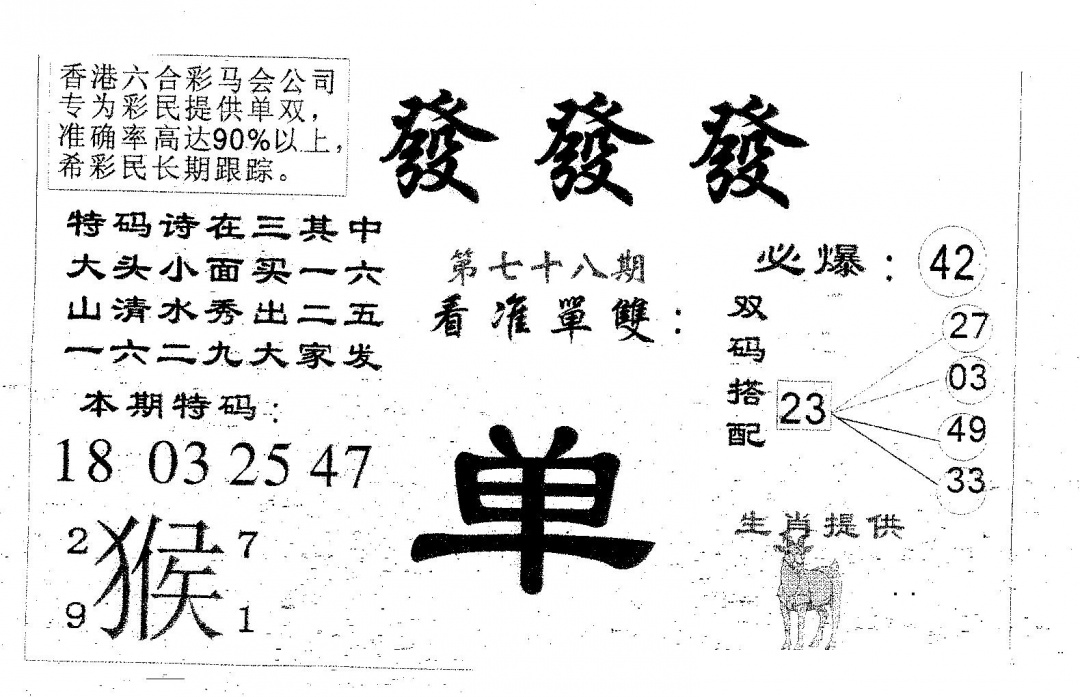 香港六合彩马会公司
专为彩民提供单双，
准确率高达90%以上，
希彩民长期跟踪。
發發發
特码诗在三其中
大头小面买一六
山清水秀出二五
一六二九大家发
本期特码：
18 03 25 47
2 猴 7
9 1
第七十八期
看准單雙：
单
必爆：42
双码搭配
23
27
03
49
33
生肖提供